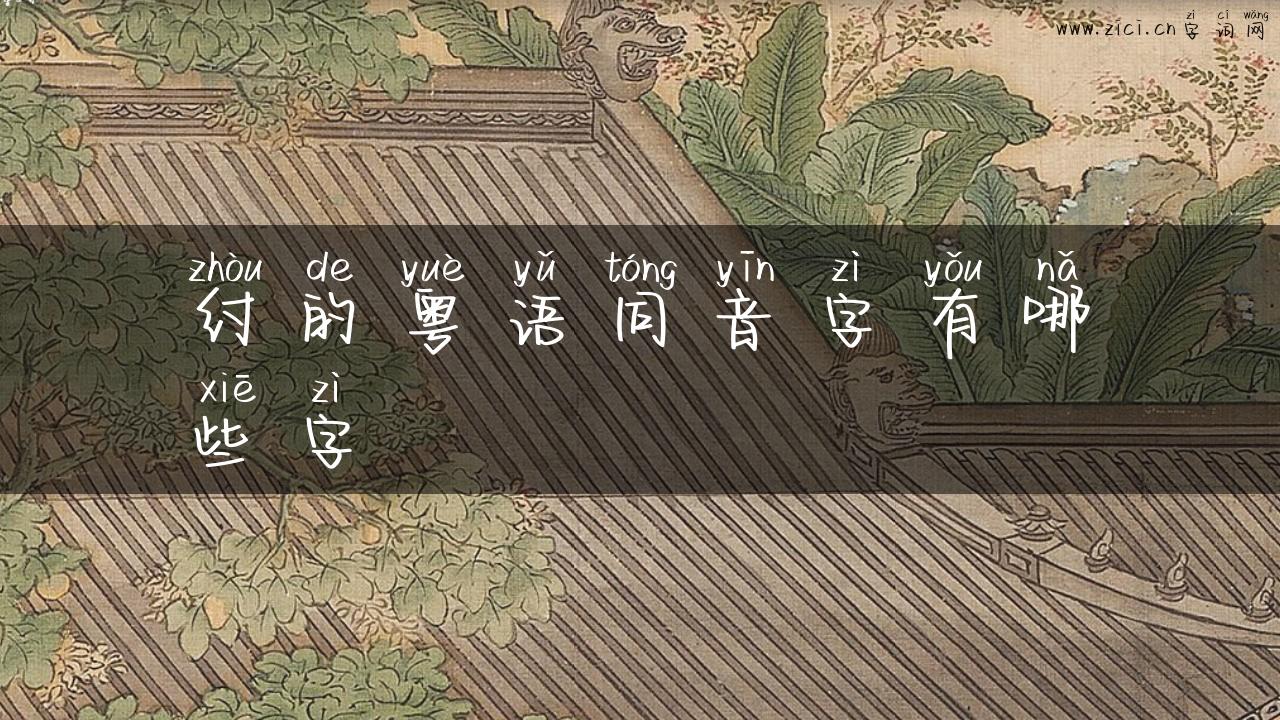 zì cí wǎng
www.zici.cn 字词网
zhòu de yuè yǔ tóng yīn zì yǒu nǎ
纣的粤语同音字有哪
xiē zì
些字